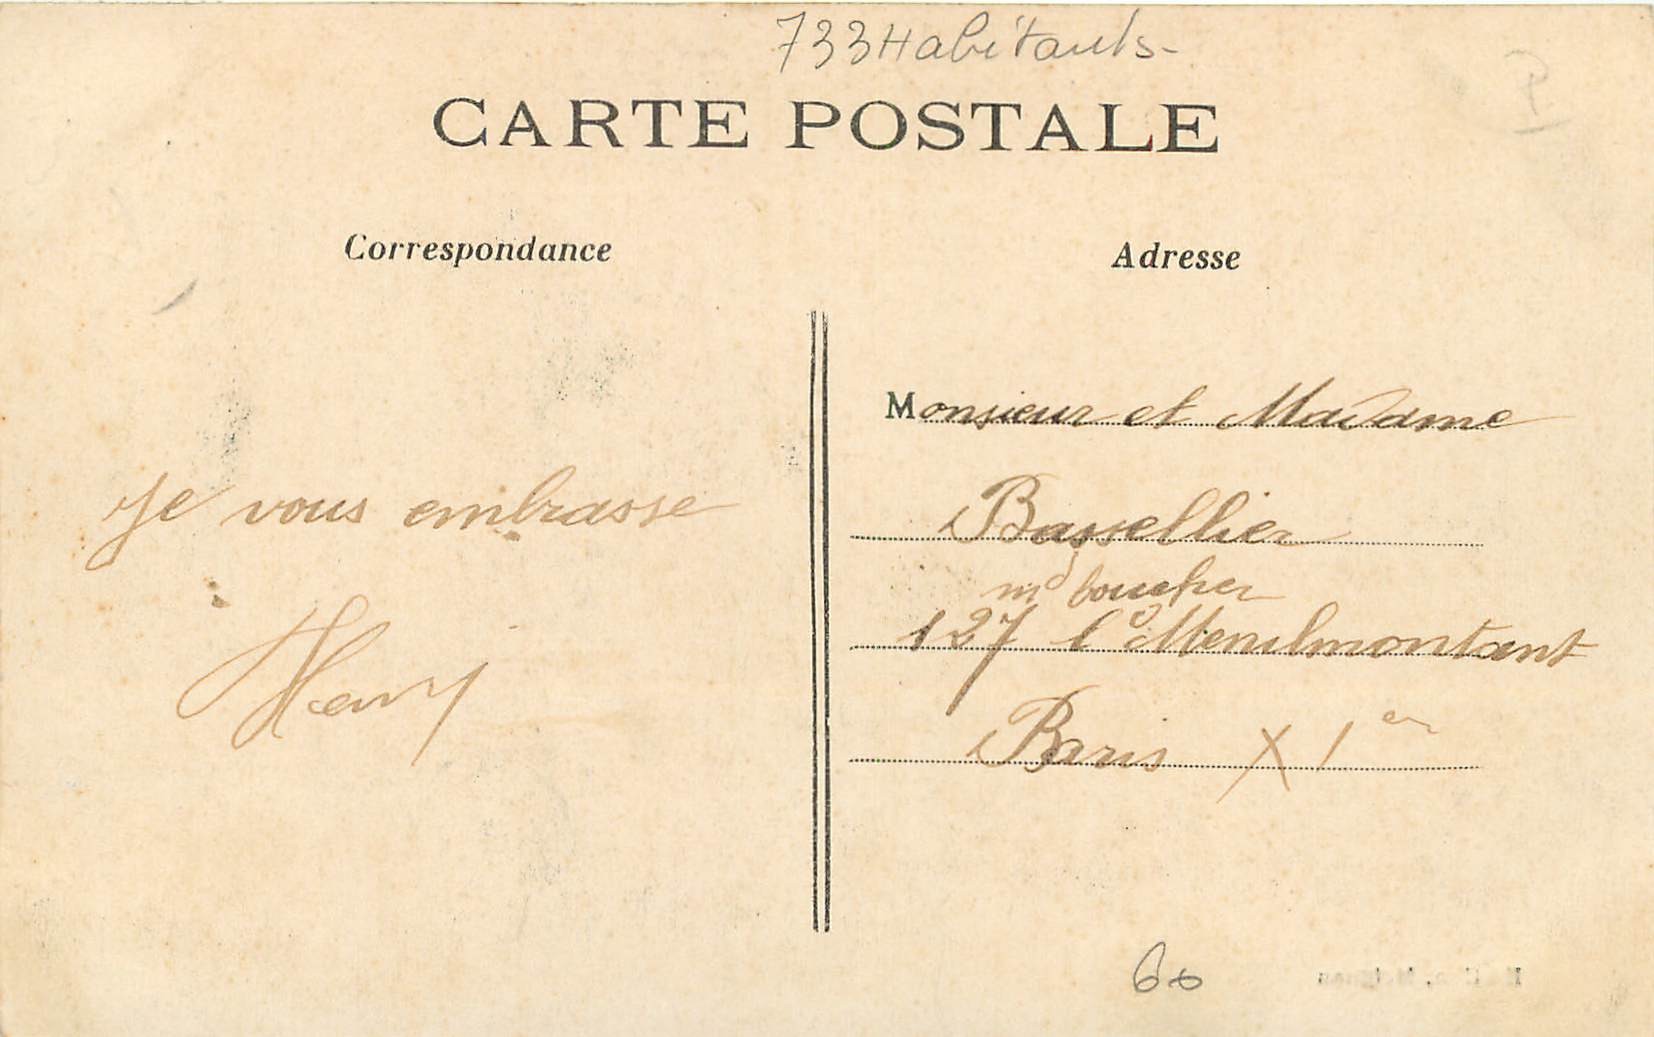 733 Habitants-
CARTE POSTALE
Correspondance
Adresse
Je vous embrasse
Henry
Monsieur et Madame
Bassellier
md boucher
127 bd Menilmontant
Paris XIer
60